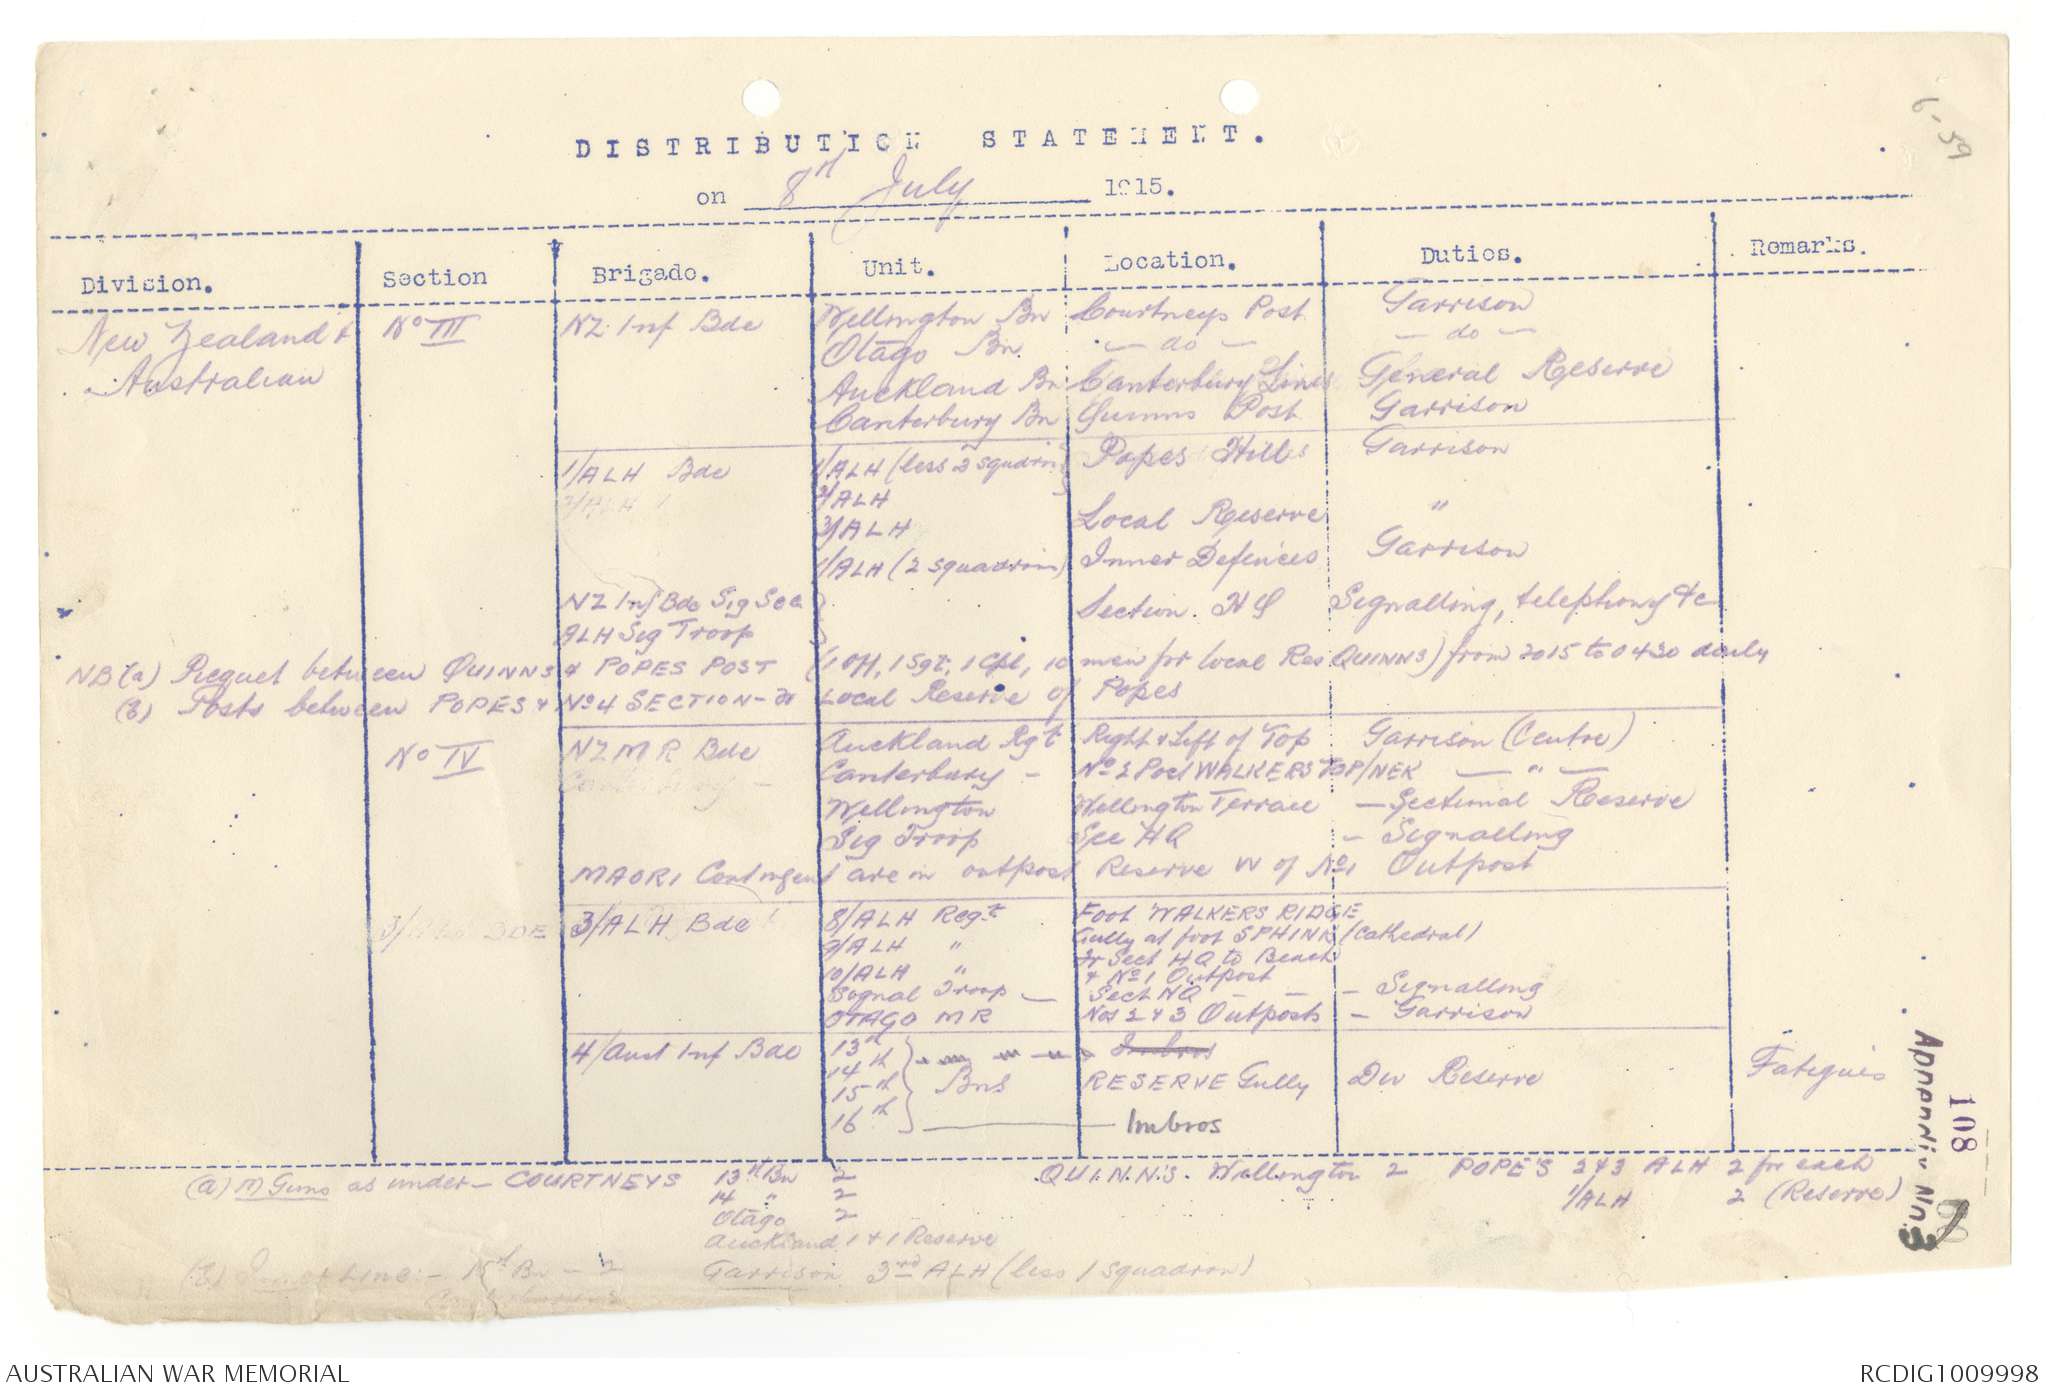 DISTRIBUTION STATEMENT.
on 8th July 1915.
Division. Section Brigade. Unit. Location. Duties. Remarks.
New Zealand & No III NZ Inf Bde Wellington Bn Courtneys Post Garrison
Australian Otago Bn — do — — do —
Auckland Bn Canterbury Lines General Reserve
Canterbury Bn Quinns Post Garrison
1/ALH Bde 1/ALH (less 2 squadrons) Popes Hill Garrison
2/ALH
3/ALH Local Reserve "
1/ALH (2 squadrons) Inner Defences Garrison
NZ Inf Bde Sig Sec Section. HQ Signalling, telephony &c
ALH Sig Troop
NB (a) Piequet between QUINNS & POPES POST (1 Off, 1 Sgt, 1 Cpl, 10 men for local Res QUINNS) from 2015 to 0430 daily
(b) Posts between POPES & No 4 SECTION - Local Reserve of Popes
No IV NZ M R Bde Auckland Rgt Right & Left of Top Garrison (Centre)
Canterbury - No 2 Post WALKERS TOP/NEK — " —
Wellington Wellington Terrace — Sectional Reserve
Sig Troop Sec HQ - Signalling
MAORI Contingent are in outpost Reserve W of No 1 Outpost
3/ALH BDE 3/ALH Bde 8/ALH Regt Foot WALKERS RIDGE
9/ALH " Gully at foot SPHINX (Cathedral)
10/ALH " Sect HQ to Beach
& No 1 Outpost
Signal Troop — Sect HQ - - - Signalling
OTAGO MR Nos 2 & 3 Outposts - Garrison
4/Aust Inf Bde 13th Imbros
14th
15th Bns RESERVE Gully Div Reserve Fatigues
16th Imbros
(a) M Guns as under - COURTNEYS 13th Bn 2 QUINN'S. Wellington 2 POPE'S 2 & 3 ALH 2 for each
14 " 2 1/ALH 2 (Reserve)
Otago 2
Auckland 1 & 1 Reserve
(b) Inner Line:- 15th Bn - 2 Garrison 3rd ALH (less 1 squadron)
Appendix No. 3
108
AUSTRALIAN WAR MEMORIAL RCDIG1009998